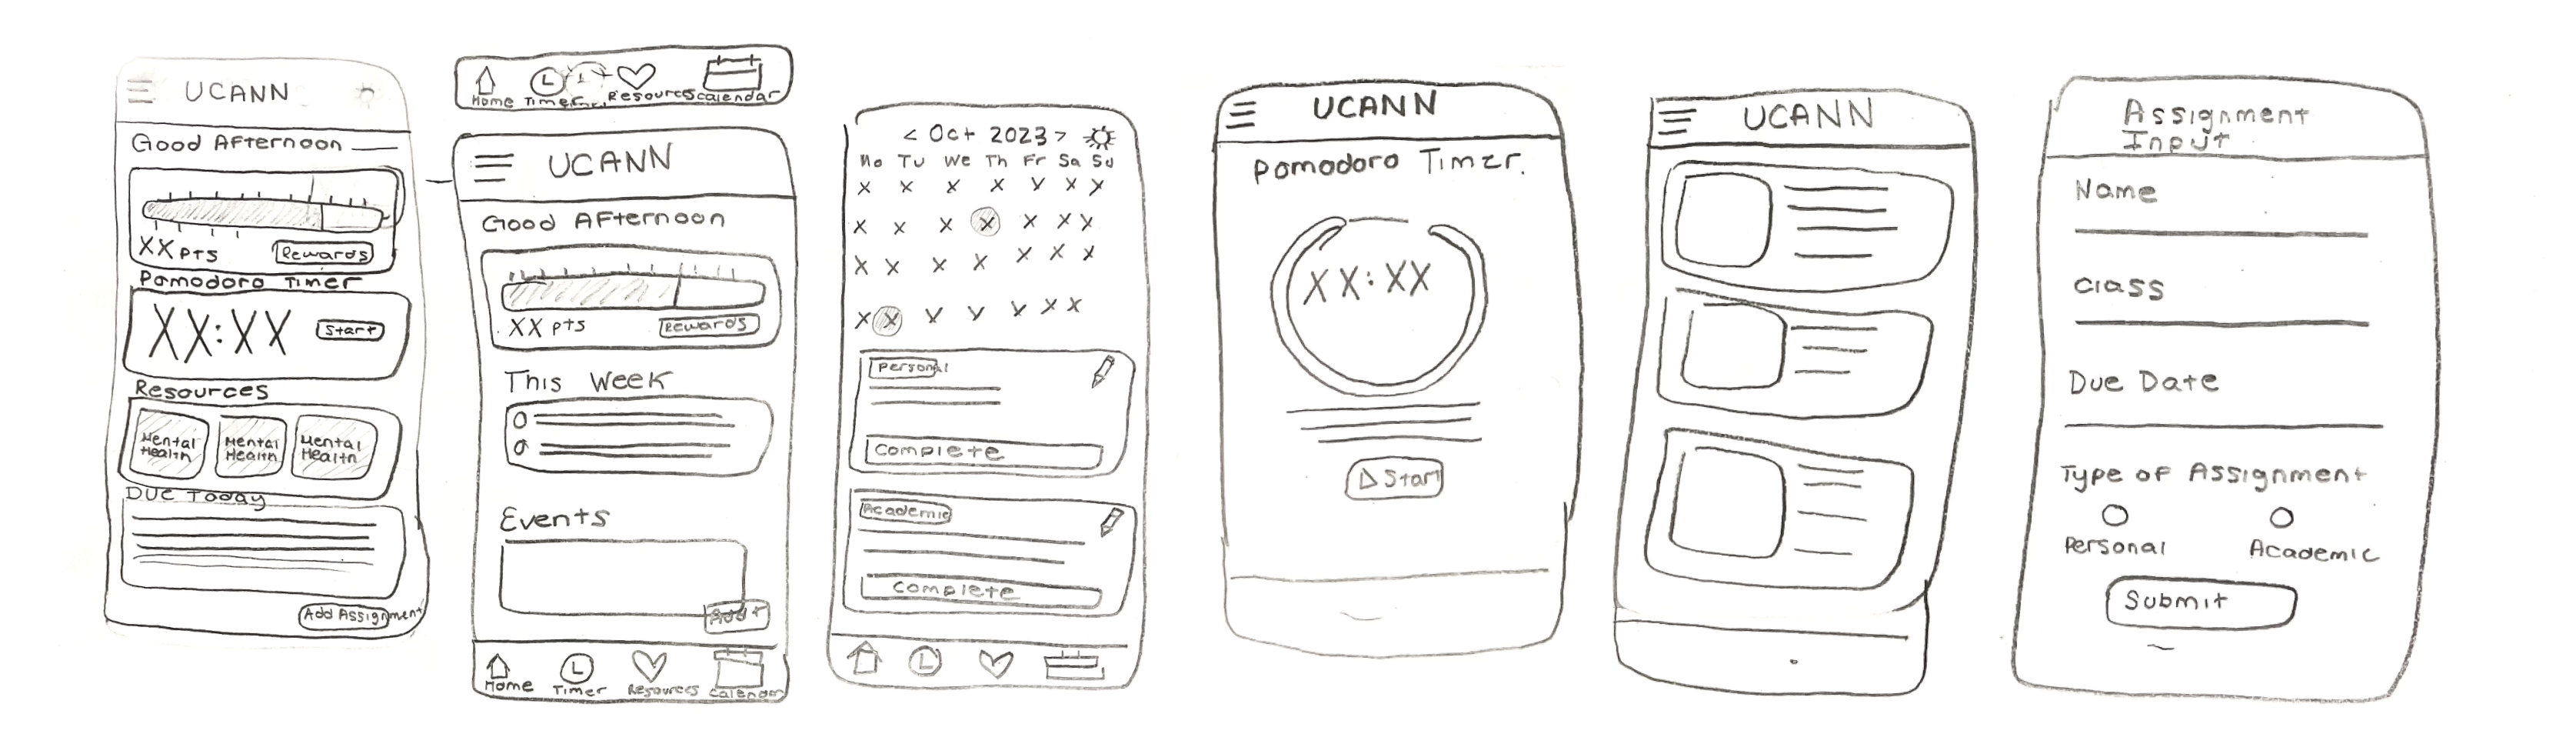 UCANN
Good Afternoon
XX pts
Rewards
Pomodoro Timer
XX:XX
Start
Resources
Mental Health
Mental Health
Mental Health
Due Today
Add Assignment
Home Timer Resources Calendar
UCANN
Good Afternoon
XX pts
Rewards
This Week
Events
Add +
Home Timer Resources Calendar
< Oct 2023 >
Mo Tu We Th Fr Sa Su
x x x x x x x
x x x x x x x
x x x x x x x
x x x x x x x
Personal
Complete
Academic
Complete
UCANN
Pomodoro Timer.
XX:XX
Start
UCANN
Assignment
Input
Name
Class
Due Date
Type of Assignment
Personal Academic
Submit